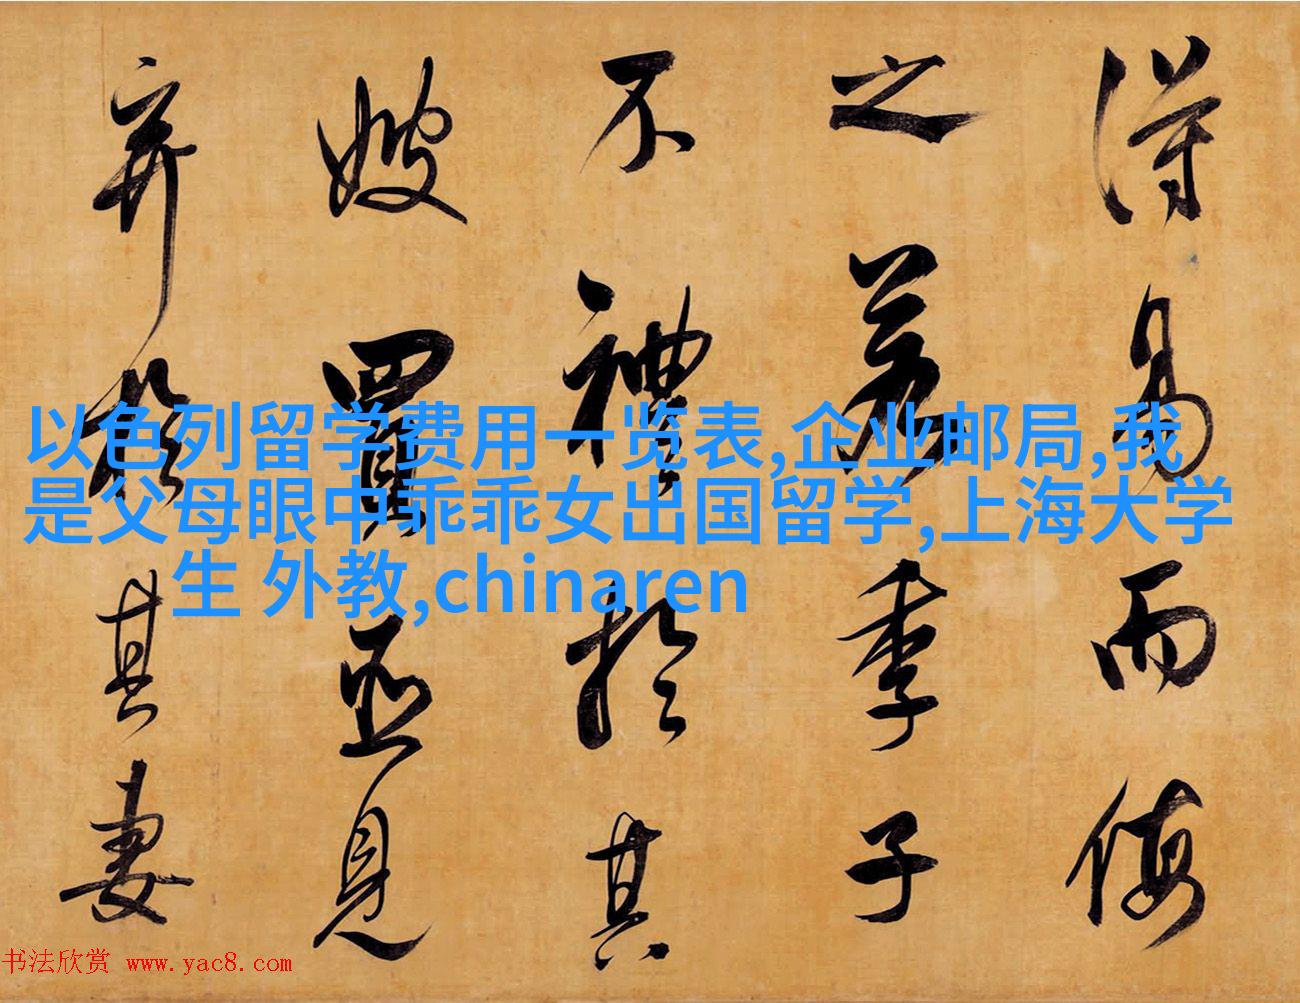 得易而侮
之若季子
不禮於其
嫂買臣見
弃於其妻
以色列留学费用一览表,企业邮局,我
是父母眼中乖乖女出国留学,上海大学
生 外教,chinaren
书法欣赏 www.yac8.com